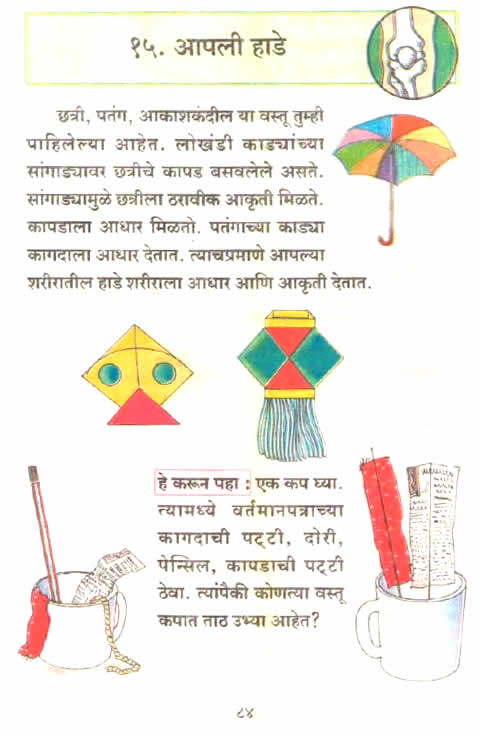 १५. आपली हाडे
छत्री, पतंग, आकाशकंदील या वस्तू तुम्ही
पाहिलेल्या आहेत. लोखंडी काड्यांच्या
सांगाड्यावर छत्रीचे कापड बसवलेले असते.
सांगाड्यामुळे छत्रीला ठरावीक आकृती मिळते.
कापडाला आधार मिळतो. पतंगाच्या काड्या
कागदाला आधार देतात. त्याचप्रमाणे आपल्या
शरीरातील हाडे शरीराला आधार आणि आकृती देतात.
हे करून पहा : एक कप घ्या.
त्यामध्ये वर्तमानपत्राच्या
कागदाची पट्टी, दोरी,
पेन्सिल, कापडाची पट्टी
ठेवा. त्यांपैकी कोणत्या वस्तू
कपात ताठ उभ्या आहेत?
८४